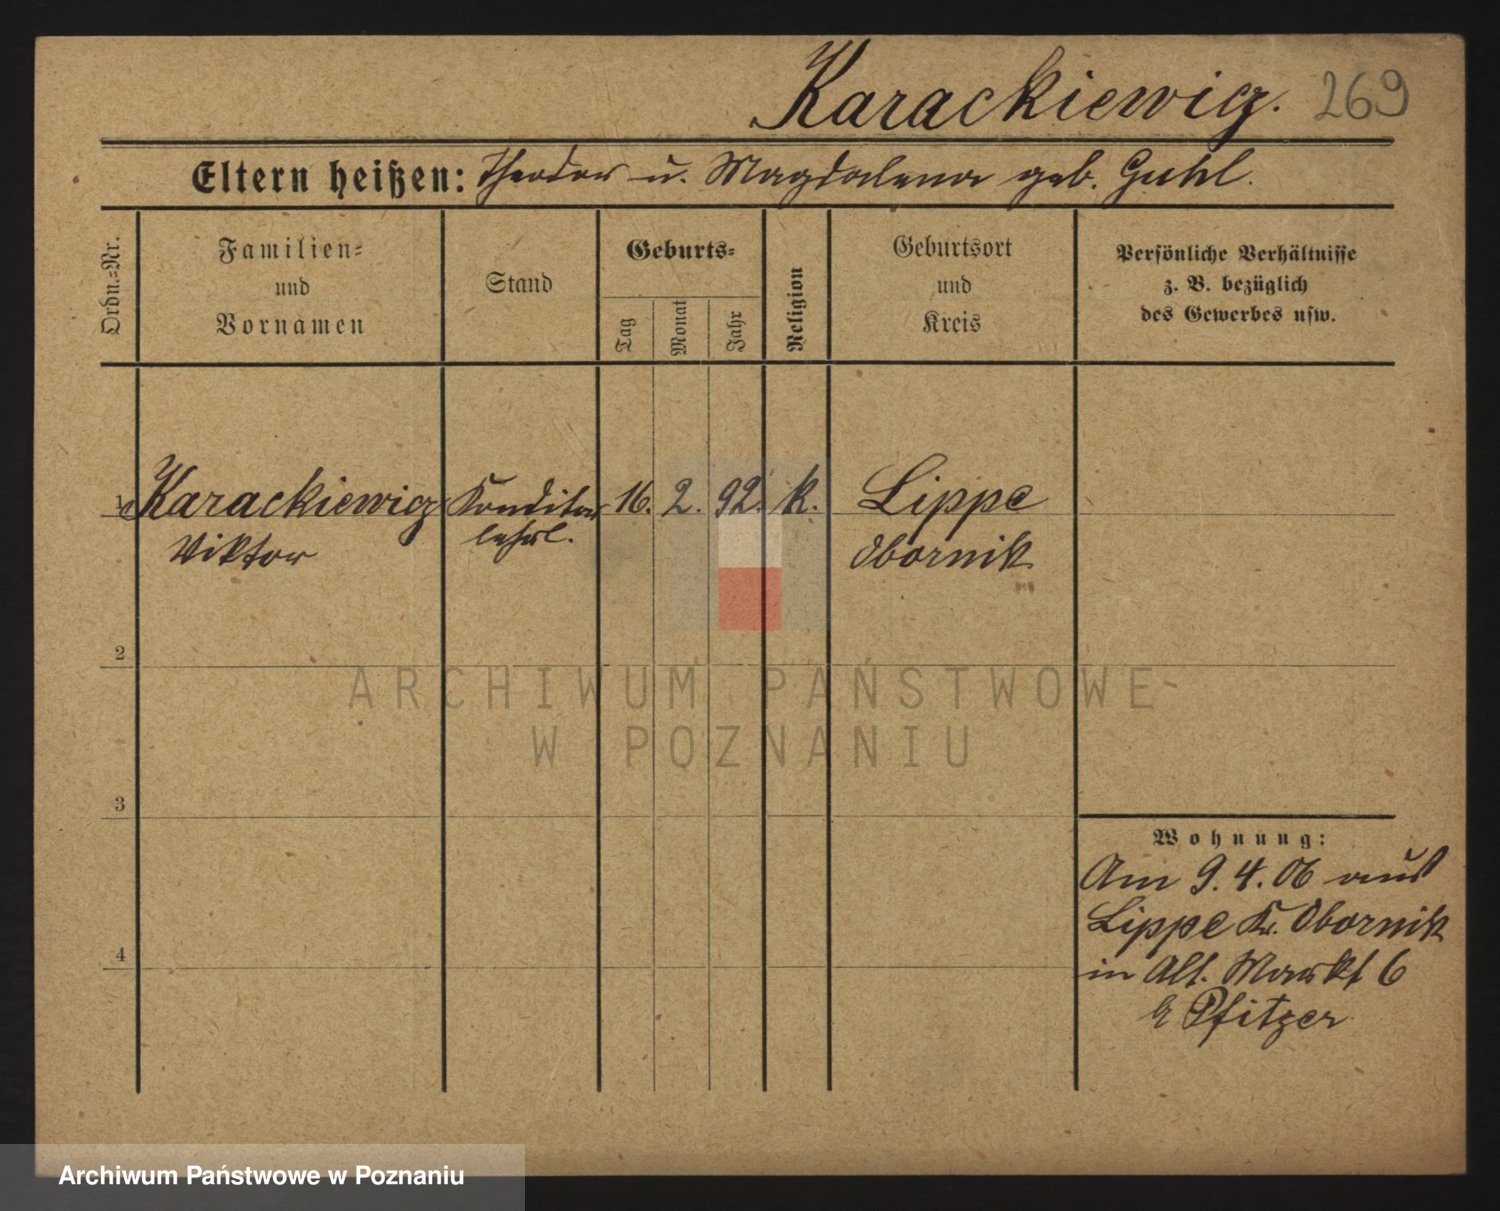 Karackiewicz. 269
Eltern heißen: Theodor u. Magdalena geb. Guhl.
Ordn.=Nr.
Familien= und Vornamen
Stand
Geburts=
Tag
Monat
Jahr
Religion
Geburtsort und Kreis
Persönliche Verhältnisse
z. B. bezüglich
des Gewerbes usw.
1 Karackiewicz Konditor 16. 2. 92. k. Lippe
Viktor lehrl. Obornik
2
3
4
Wohnung:
Am 9. 4. 06 aus
Lippe Kr. Obornik
in Alt. Markt 6
b Pfitzer
ARCHIWUM PAŃSTWOWE
W POZNANIU
Archiwum Państwowe w Poznaniu